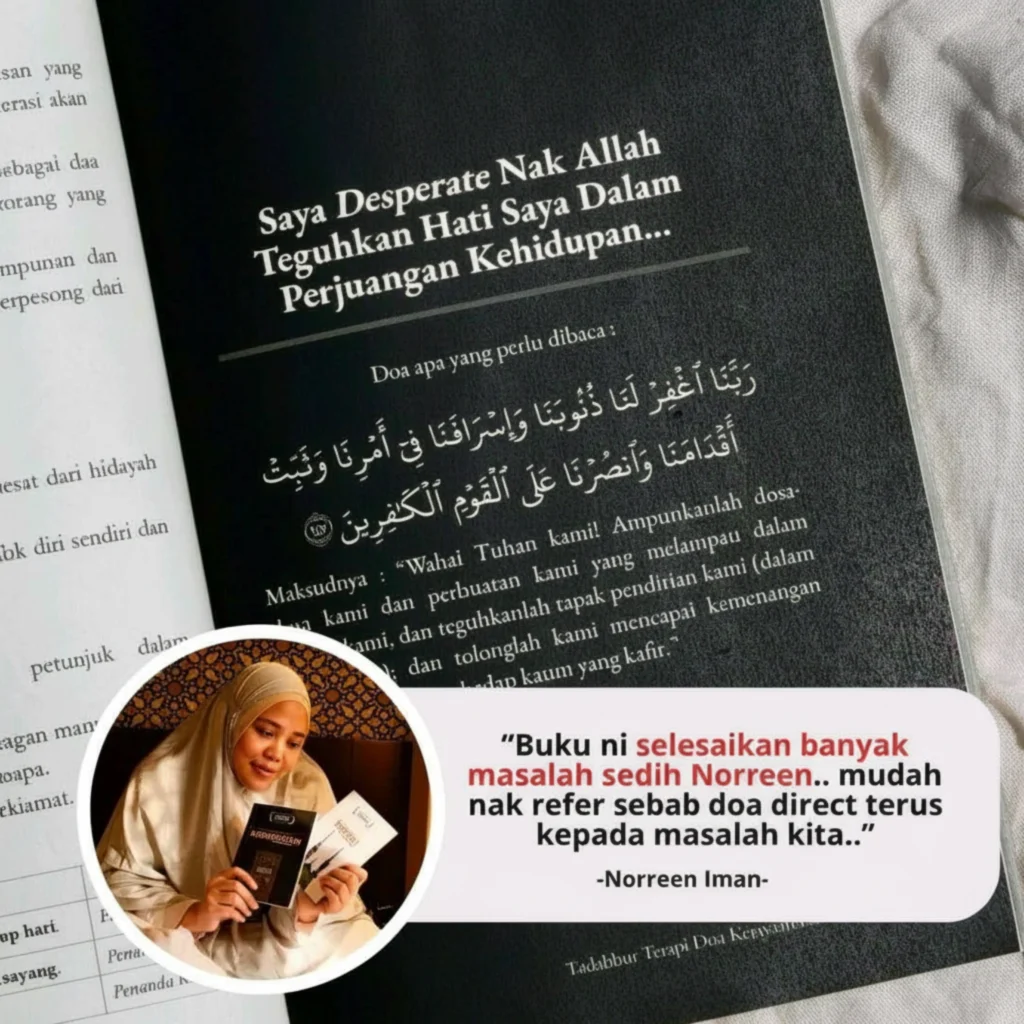 san yang
erasi akan
sebagai daa
orang yang
mpunan dan
erpesong dari
esat dari hidayah
ok diri sendiri dan
petunjuk dalam
apa.
ekiamat.
up hari.
sayang.
Penanda
Saya Desperate Nak Allah
Teguhkan Hati Saya Dalam
Perjuangan Kehidupan...
Doa apa yang perlu dibaca :
رَبَّنَا ٱغْفِرْ لَنَا ذُنُوبَنَا وَإِسْرَافَنَا فِىٓ أَمْرِنَا وَثَبِّتْ
أَقْدَامَنَا وَٱنصُرْنَا عَلَى ٱلْقَوْمِ ٱلْكَـٰفِرِينَ ١٤٧
Maksudnya : “Wahai Tuhan kami! Ampunkanlah dosa-
kami dan perbuatan kami yang melampau dalam
kami, dan teguhkanlah tapak pendirian kami (dalam
); dan tolonglah kami mencapai kemenangan
kaum yang kafir.”
“Buku ni selesaikan banyak
masalah sedih Norreen.. mudah
nak refer sebab doa direct terus
kepada masalah kita..”
-Norreen Iman-
Tadabbur Terapi Doa